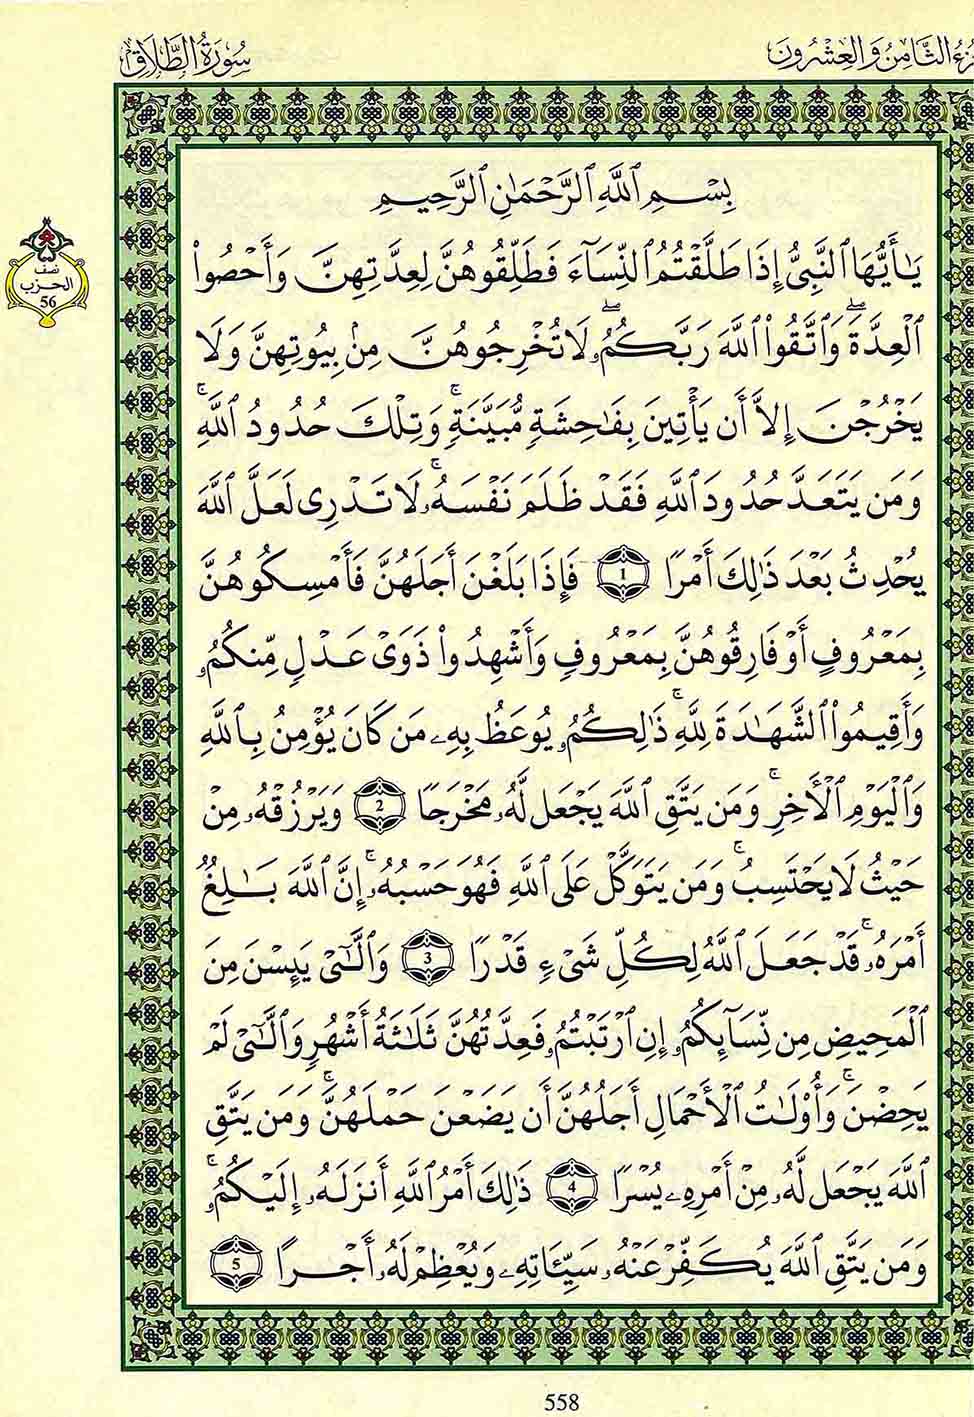 سُورَةُ الطَّلَاقِ
الجُزْءُ الثَّامِنُ وَالعِشْرُونَ
نصف
الحزب
56
بِسْمِ اللَّهِ الرَّحْمَٰنِ الرَّحِيمِ
يَٰأَيُّهَا ٱلنَّبِىُّ إِذَا طَلَّقْتُمُ ٱلنِّسَآءَ فَطَلِّقُوهُنَّ لِعِدَّتِهِنَّ وَأَحْصُوا۟
ٱلْعِدَّةَۖ وَٱتَّقُوا۟ ٱللَّهَ رَبَّكُمُۥۖ لَا تُخْرِجُوهُنَّ مِنۢ بِيُوتِهِنَّ وَلَا
يَخْرُجْنَ إِلَّا أَن يَأْتِينَ بِفَٰحِشَةٍ مُّبَيَّنَةٍۚ وَتِلْكَ حُدُودُ ٱللَّهِۚ
وَمَن يَتَعَدَّ حُدُودَ ٱللَّهِ فَقَدْ ظَلَمَ نَفْسَهُۥۚ لَا تَدْرِى لَعَلَّ ٱللَّهَ
يُحْدِثُ بَعْدَ ذَٰلِكَ أَمْرًا 1 فَإِذَا بَلَغْنَ أَجَلَهُنَّ فَأَمْسِكُوهُنَّ
بِمَعْرُوفٍ أَوْ فَارِقُوهُنَّ بِمَعْرُوفٍ وَأَشْهِدُوا۟ ذَوَىْ عَدْلٍ مِّنكُمُۥ
وَأَقِيمُوا۟ ٱلشَّهَٰدَةَ لِلَّهِۚ ذَٰلِكُمُۥ يُوعَظُ بِهِۦ مَن كَانَ يُؤْمِنُ بِٱللَّهِ
وَٱلْيَوْمِ ٱلْأَخِرِۚ وَمَن يَتَّقِ ٱللَّهَ يَجْعَل لَّهُۥ مَخْرَجًا 2 وَيَرْزُقْهُۥ مِنْ
حَيْثُ لَا يَحْتَسِبُۚ وَمَن يَتَوَكَّلْ عَلَى ٱللَّهِ فَهُوَ حَسْبُهُۥۚ إِنَّ ٱللَّهَ بَٰلِغٌ
أَمْرَهُۥۚ قَدْ جَعَلَ ٱللَّهُ لِكُلِّ شَىْءٍ قَدْرًا 3 وَٱلَّٰٓـِٔى يَئِسْنَ مِنَ
ٱلْمَحِيضِ مِن نِّسَآئِكُمُۥ إِنِ ٱرْتَبْتُمُۥ فَعِدَّتُهُنَّ ثَلَٰثَةُ أَشْهُرٍ وَٱلَّٰٓـِٔى لَمْ
يَحِضْنَۚ وَأُو۟لَٰتُ ٱلْأَحْمَالِ أَجَلُهُنَّ أَن يَضَعْنَ حَمْلَهُنَّۚ وَمَن يَتَّقِ
ٱللَّهَ يَجْعَل لَّهُۥ مِنْ أَمْرِهِۦ يُسْرًا 4 ذَٰلِكَ أَمْرُ ٱللَّهِ أَنزَلَهُۥ إِلَيْكُمُۥۚ
وَمَن يَتَّقِ ٱللَّهَ يُكَفِّرْ عَنْهُۥ سَيِّـَٔاتِهِۦ وَيُعْظِمْ لَهُۥ أَجْرًا 5
558